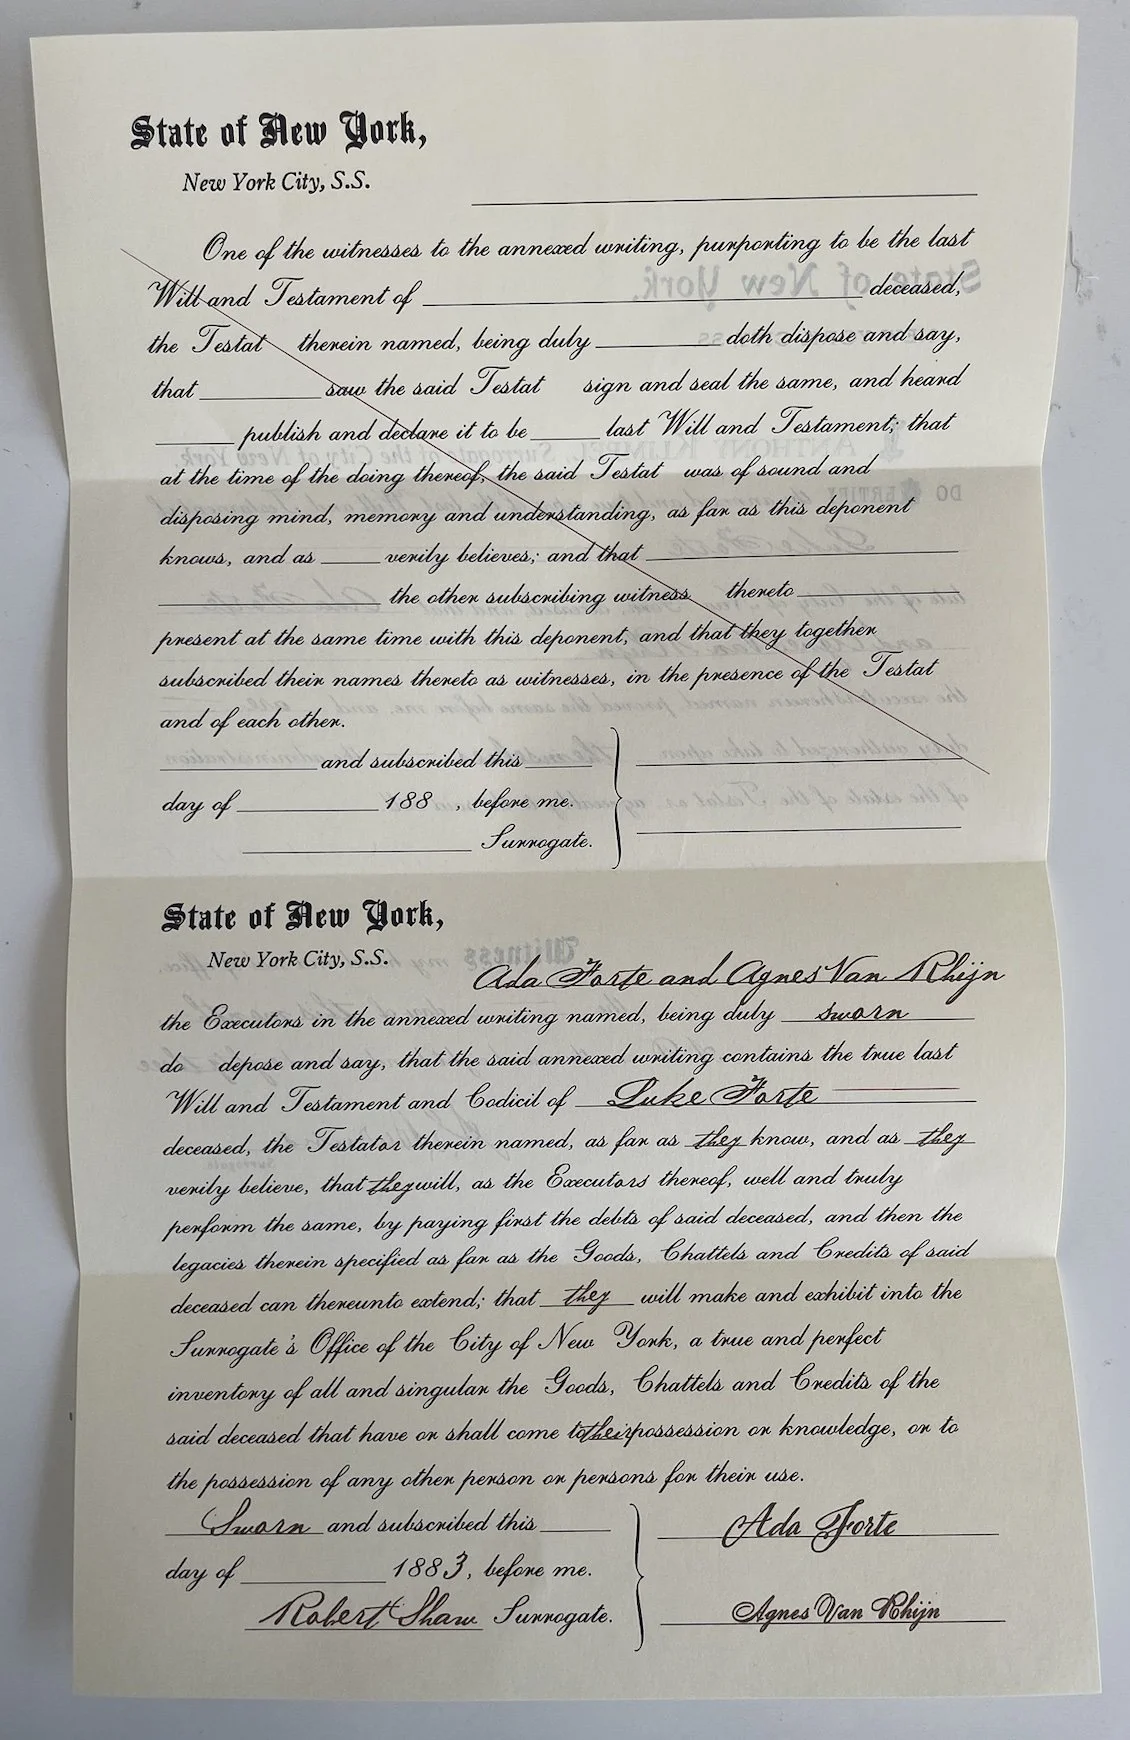 State of New York,
New York City, S.S.
One of the witnesses to the annexed writing, purporting to be the last
Will and Testament of deceased,
the Testat therein named, being duly doth dispose and say,
that saw the said Testat sign and seal the same, and heard
publish and declare it to be last Will and Testament; that
at the time of the doing thereof, the said Testat was of sound and
disposing mind, memory and understanding, as far as this deponent
knows, and as verily believes; and that
the other subscribing witness thereto
present at the same time with this deponent, and that they together
subscribed their names thereto as witnesses, in the presence of the Testat
and of each other.
and subscribed this
day of 188 , before me.
Surrogate.
State of New York,
New York City, S.S.
Ada Forte and Agnes Van Rhijn
the Executors in the annexed writing named, being duly sworn
do depose and say, that the said annexed writing contains the true last
Will and Testament and Codicil of Luke Forte
deceased, the Testator therein named, as far as they know, and as they
verily believe, that they will, as the Executors thereof, well and truly
perform the same, by paying first the debts of said deceased, and then the
legacies therein specified as far as the Goods, Chattels and Credits of said
deceased can thereunto extend; that they will make and exhibit into the
Surrogate's Office of the City of New York, a true and perfect
inventory of all and singular the Goods, Chattels and Credits of the
said deceased that have or shall come to their possession or knowledge, or to
the possession of any other person or persons for their use.
Sworn and subscribed this
day of 1883, before me.
Robert Shaw Surrogate.
Ada Forte
Agnes Van Rhijn